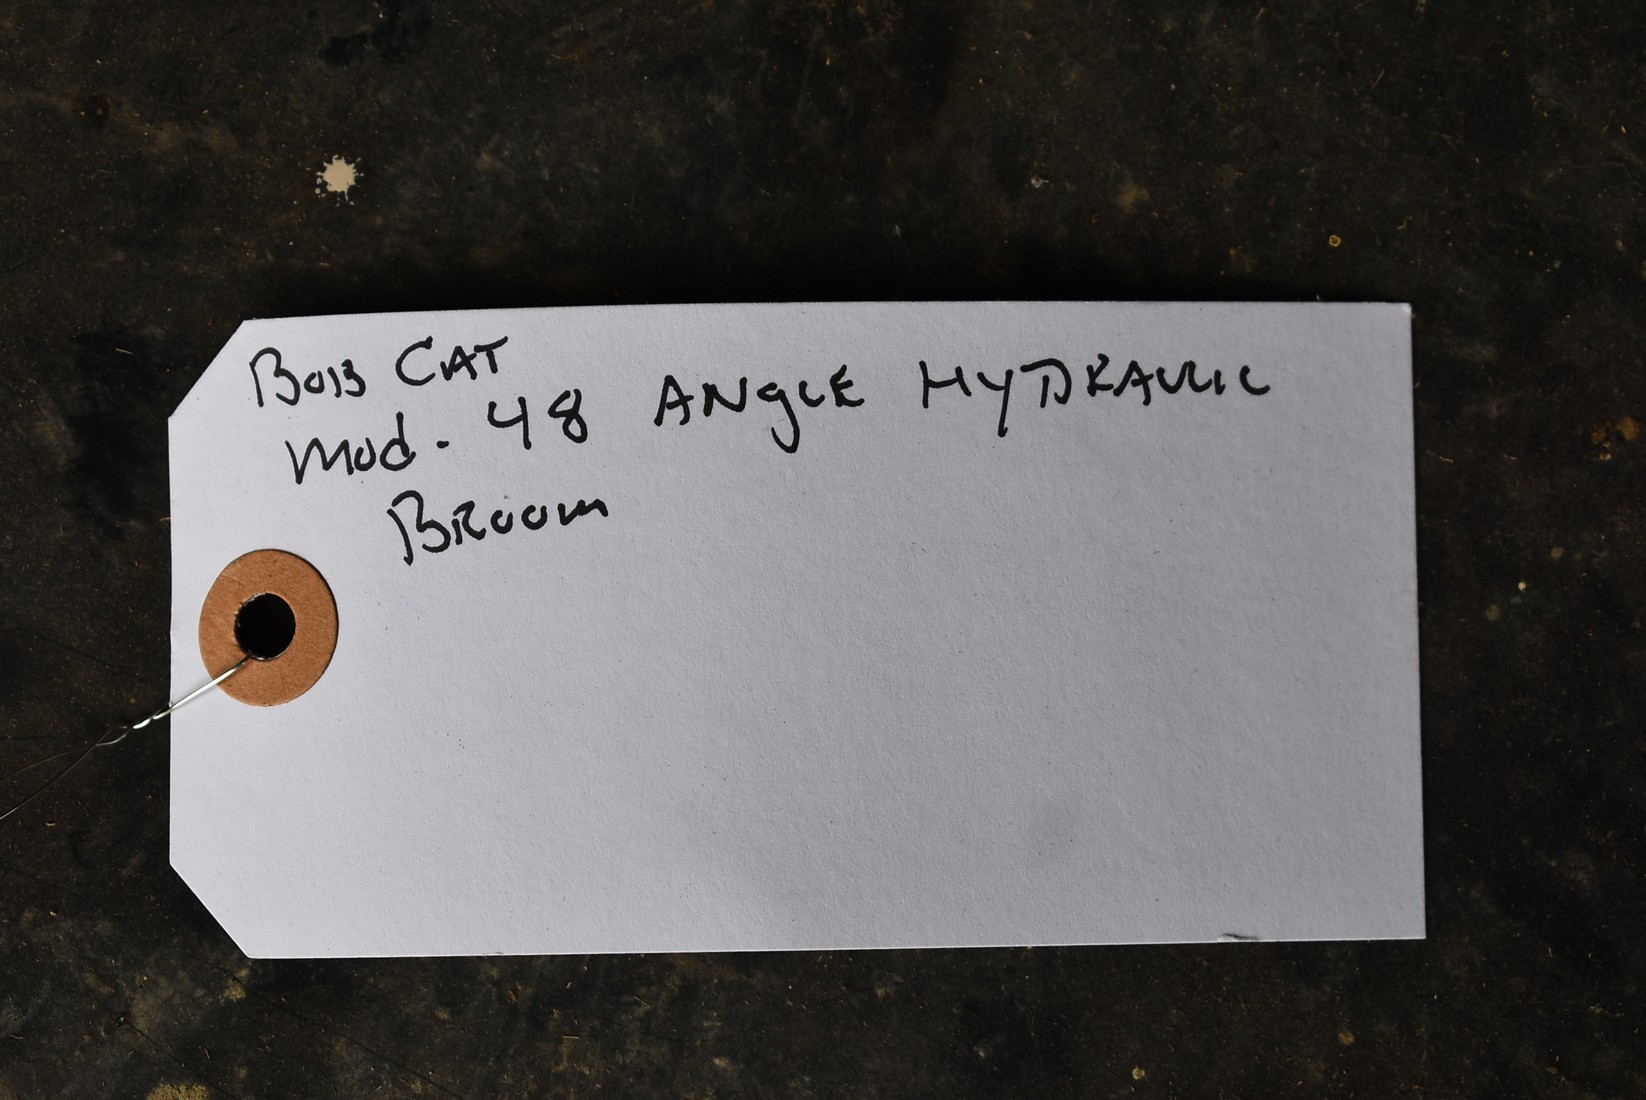 BOB CAT
Mod. 48 ANgLE HYDRAULIC
BROOM